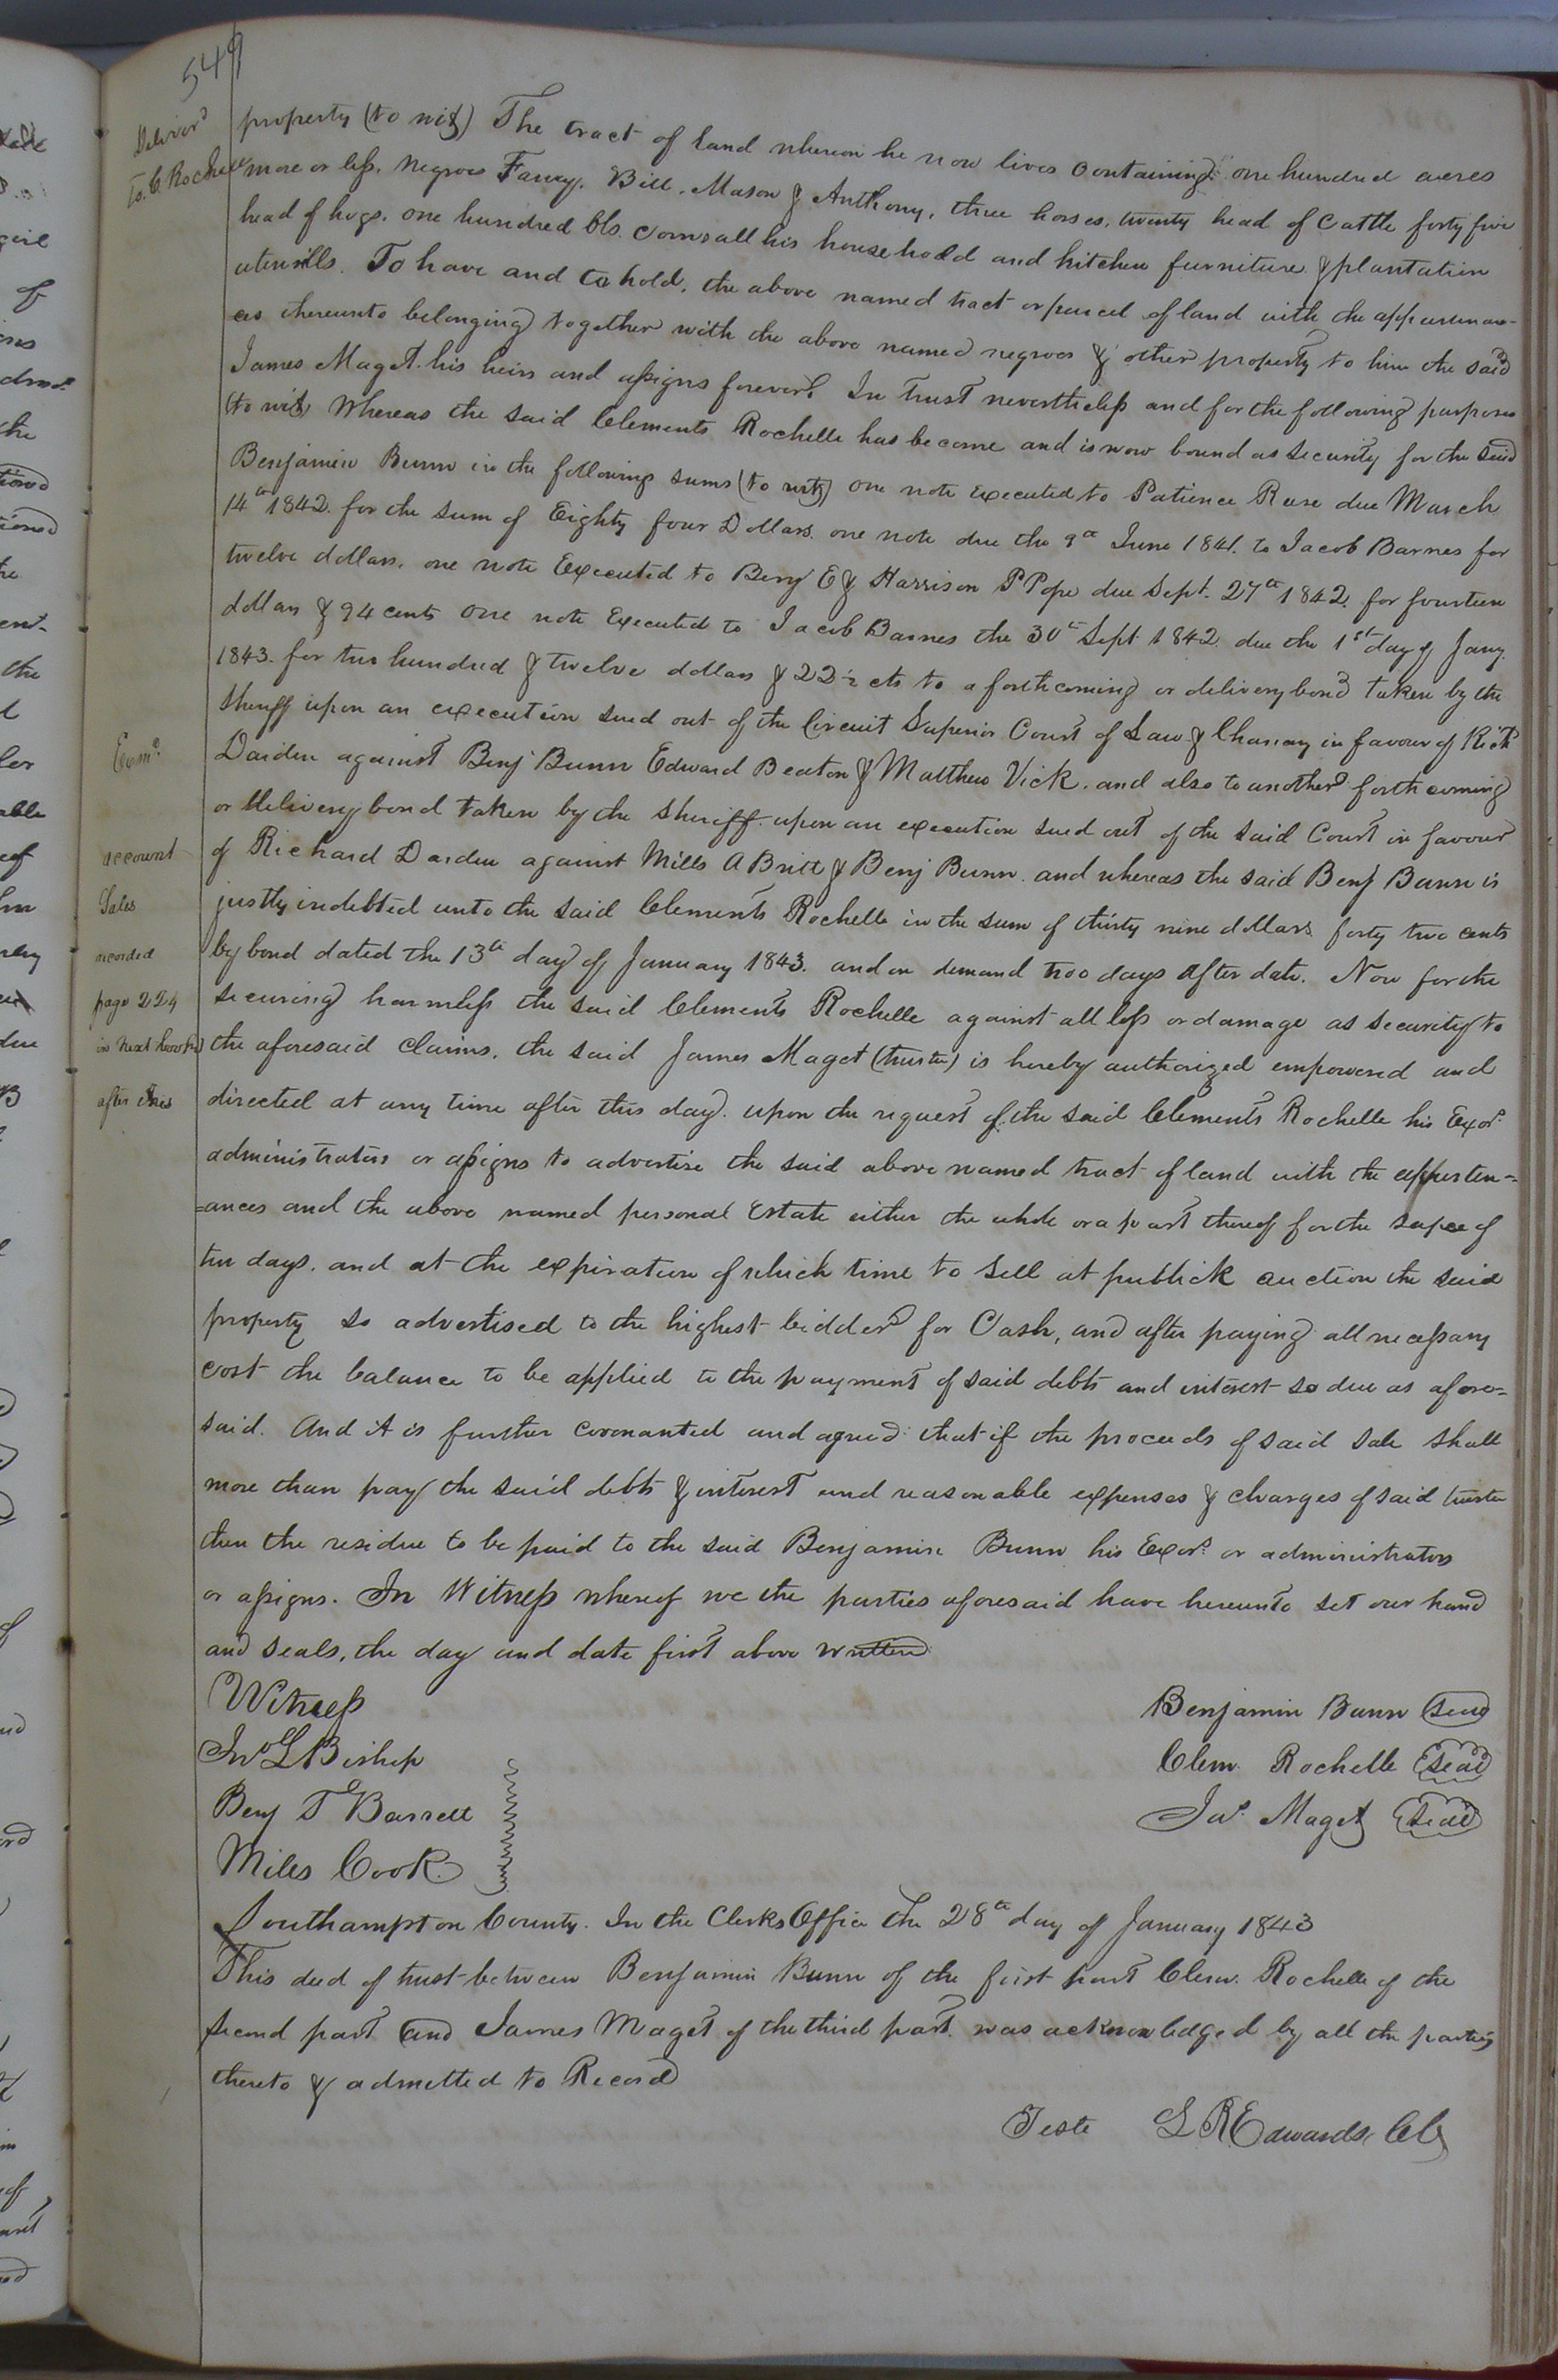 549
Deliverd
To. C. Rochelle
property (to wit) The tract of land whereon he now lives Containing one hundred acres
more or less. Negroes Fanny. Bill. Mason & Anthony, three horses, twenty head of Cattle forty five
head of hogs. one hundred bls. corn all his household and kitchen furniture & plantation
utensills. To have and to hold, the above named tract or parcel of land with the appurtenan-
ces thereunto belonging together with the above named negroes & other property to him the said
James Maget. his heirs and assigns forever. In Trust nevertheless and for the following purposes
(to wit) Whereas the said Clements Rochelle has become and is now bound as security for the said
Benjamin Bunn in the following sums (to wit) one note executed to Patience Rose due March
14th 1842. for the sum of Eighty four Dollars. one note due the 9th June 1841. to Jacob Barnes for
twelve dollars. one note Executed to Benj E & Harrison P Pope due Sept. 27th 1842. for fourteen
dollars & 94 cents one note Executed to Jacob Barnes the 30th Sept 1842. due the 1st day of Jany.
1843. for two hundred & twelve dollars & 22½ cts to a forthcoming or delivery bond taken by the
Sheriff upon an execution sued out of the Circuit Superior Court of Law & Chancery in favour of Richd
Darden against Benj Bunn Edward Beaton & Matthew Vick. and also to another forthcoming
or delivery bond taken by the Sheriff upon an execution sued out of the said Court in favour
of Richard Darden against Mills A Britt & Benj Bunn. and whereas the said Benj Bunn is
justly indebted unto the said Clements Rochelle in the sum of thirty nine dollars forty two cents
by bond dated the 13th day of January 1843. and on demand two days after date. Now for the
securing harmless the said Clements Rochelle against all loss or damage as security to
the aforesaid claims. the said James Maget (trustee) is hereby authorized empowered and
directed at any time after this day. upon the request of the said Clements Rochelle his Exors.
administrators or assigns to advertise the said above named tract of land with the appurten=
=ances and the above named personal Estate either the whole or a part thereof for the space of
ten days. and at the expiration of which time to sell at publick auction the said
property so advertised to the highest bidder for Cash, and after paying all necessary
cost the balance to be applied to the payment of said debts and interest so due as afore=
said. And it is further covenanted and agreed that if the proceeds of said sale shall
more than pay the said debts & interest and reasonable expenses & charges of said trustee
then the residue to be paid to the said Benjamin Bunn his Exors. or administrators
or assigns. In Witness whereof we the parties aforesaid have hereunto set our hand
and seals, the day and date first above written
Examd.
account
Sales
recorded
page 224
in next book
after this
Witness
Jno L Bishop
Benj T Barrett
Miles Cook
Benjamin Bunn Seal
Clem. Rochelle Seal
Jas. Maget Seal
Southampton County. In the Clerks Office the 28th day of January 1843
This deed of trust between Benjamin Bunn of the first part Clem. Rochelle of the
second part and James Maget of the third part. was acknowledged by all the parties
thereto & admitted to Record
Teste L R Edwards Clk